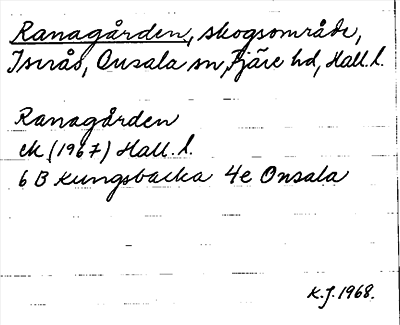 Ranagården, skogsområde,
Isnäs, Onsala sn, Fjäre hd, Hall. l.
Ranagården
ek (1967) Hall. l.
6 B Kungsbacka 4e Onsala
K.J. 1968.